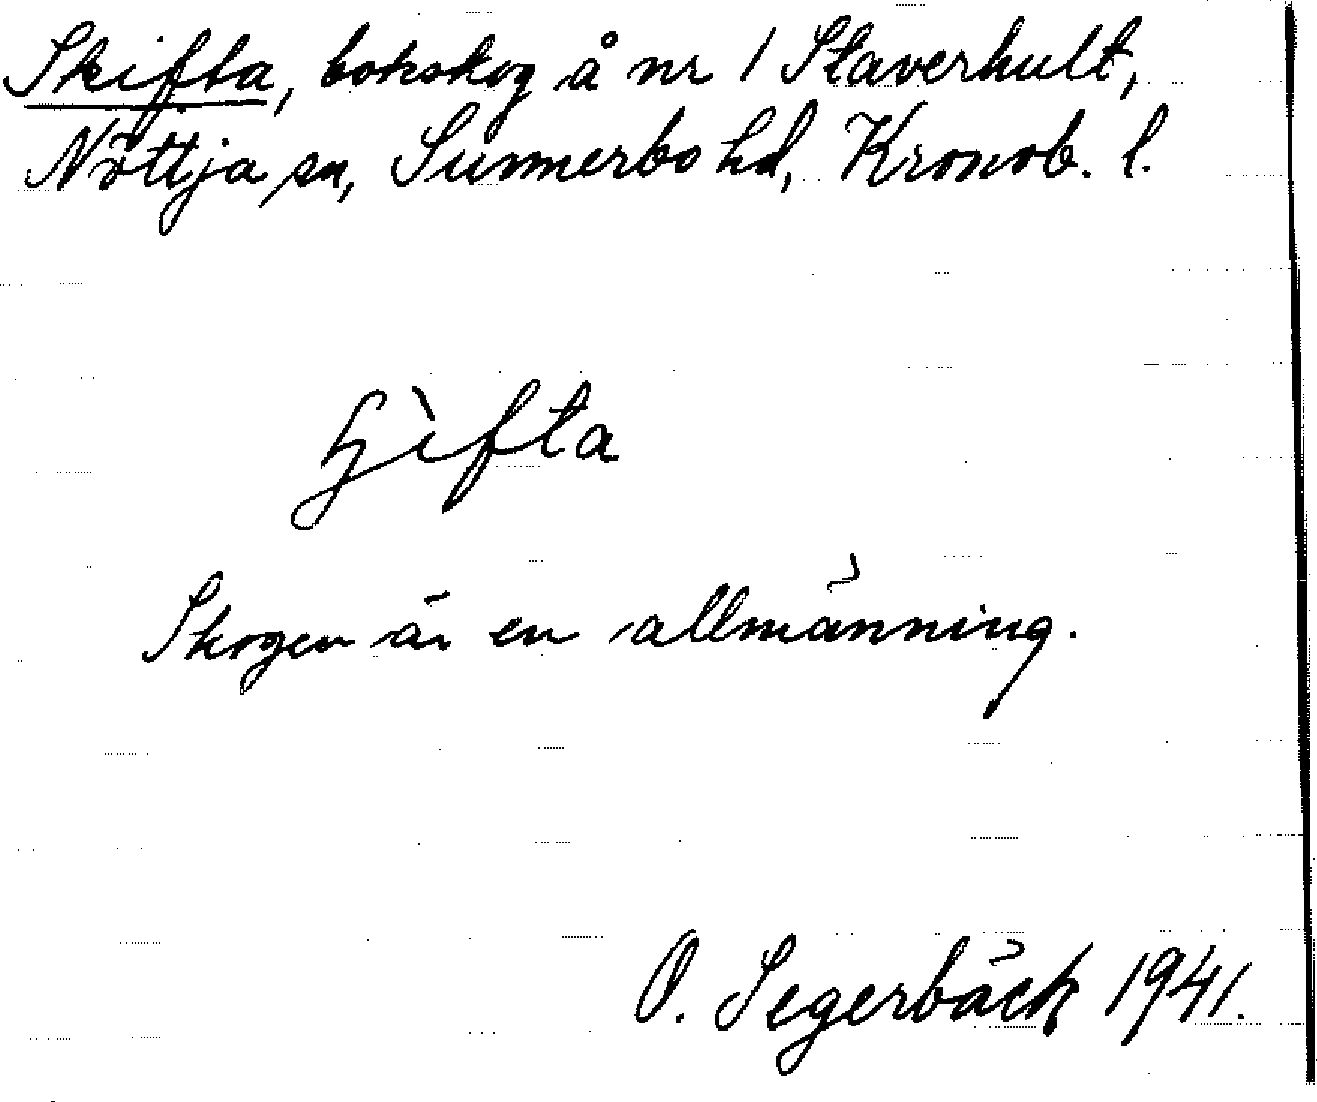 Skifta, bokskog å nr 1 Staverhult,
Nöttja sn, Sunnerbo hd, Kronob. l.
ɧìfta
Skogen är en allmänning.
O. Segerbäck 1941.